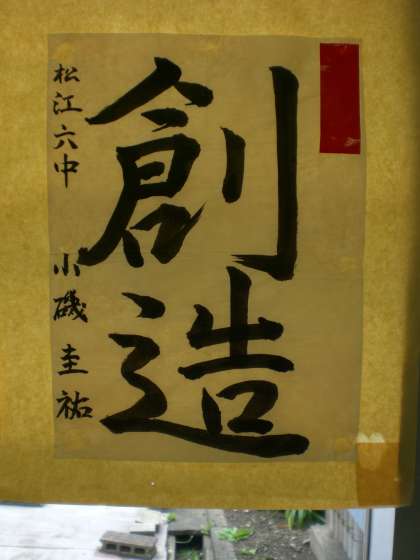 創造
松江六中 小磯圭祐